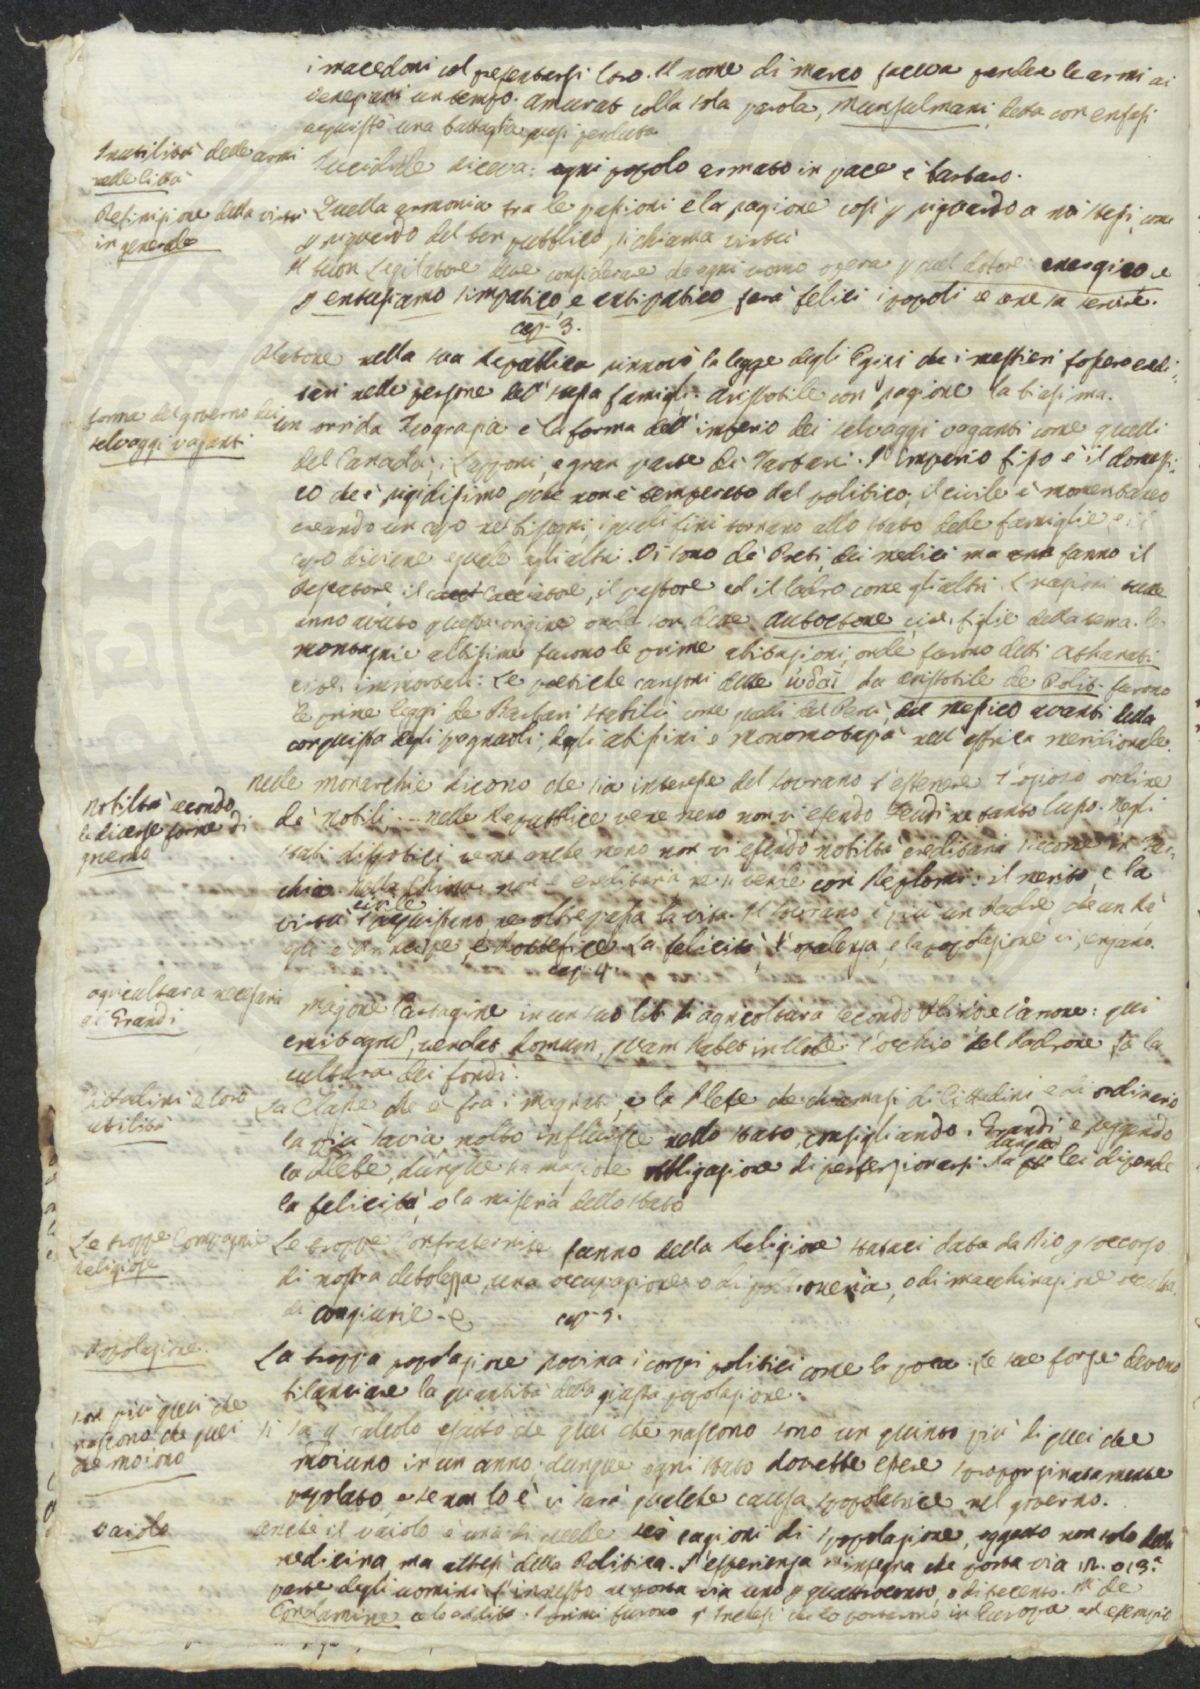 i macedoni col presentarsi loro. Il nome di marco faceva perdere le armi ai
veneziani un tempo. Amurat colla sola parola, Munsulmani, detta con enfasi
acquistò una battaglia quasi perduta
Inutilità delle armi
nelle città
Tucidide diceva: ogni popolo armato in pace è barbaro.
Definizione della virtù
in generale
Quella armonia tra le passioni e la ragione così p riguardo a noi stessi, come
p riguardo del ben pubblico, si chiama virtù
Il buon Legislatore deve considerare che ogni uomo opera p quel dolore energico e
p entusiasmo simpatico, e antipatico farà felici i popoli se ne sa servire.
cap. 3.
Platone nella sua Republica rinnovò la legge degli Egizi che i mestieri fossero eredi-
tari nelle persone dell' stessa famiglia. Aristotile con ragione la biasima.
forma del governo dei
selvaggi vaganti
un orrida Teocrazia è la forma dell' imperio dei selvaggi vaganti come quelli
del Canadà, i Lapponi, e gran parte di Tartari. L'imperio fisso è il domesti-
co che è rigidissimo pche non è temperato dal politico; il civile è momentaneo
creando un capo ne bisogni, i quali finiti tornano allo stato delle famiglie e il
capo diviene eguale agli altri. Vi sono de' Preti, dei medici ma fanno il
pescatore, il cacciatore, il pastore ed il ladro come gli altri. Le nazioni tutte
anno avuto questa origine onde son dette autoctone cioè, figlie della terra. le
montagnie altissime furono le prime abitazioni, onde furono detti athanati
cioè, immortali: Le poetiche canzoni dette ὠδαὶ da aristotile de Polit. furono
le prime leggi de Barbari stabili come quelli del Perù, del Messico avanti della
conquista degli spagnuoli, degli abissini e Monomotapa nell'affrica meridionale.
Nobiltà secondo
le diverse forme di
governo
nelle monarchie dicono che sia interesse del sovrano l'estenere l'ozioso ordine
de' nobili. -- nelle Republiche ve ne meno non vi essendo Feudi ne tanto lusso. negli
stati dispotici ve ne anche meno non vi essendo nobiltà ereditaria siccome in Tur-
chia. Nella China non è ereditaria ne si vende con Diplomi: il merito, e la
virtù civile l'acquistano, ne oltre passa la vita. Il sovrano è più un Padre, che un Rè
egli è Principe, e Pontefice. La felicità, l'opulenza, e la popolazione vi regano.
cap. 4
agricultura necessaria
ai Grandi
Magone Cartagine in un suo lib di agricoltura secondo Plinio e Varrone: qui
emit agrum, vendat domum, quam habet in Urbe. l'occhio del Padrone fà la
cultura dei fondi.
Cittadini e loro
utilità
La classe che è fra i magnati, e la Plebe che chiamasi di Cittadini e di ordinario
la più savia molto influisce nello stato, consigliando i Grandi e reggendo
la Plebe, dunque sia maggiore obbligazione di perfezionarsi. da lei dipende
la felicità, o la miseria dello stato
Le troppe Compagnie
Religiose
Le troppe Confraternite fanno della Religione stataci data da Dio p soccorso
di nostra debolezza, una occupazione o di poltroneria, o di macchinazione occulta
di congiurie.
cap. 5.
Popolazione
La troppa popolazione rovina i corpi politici come la poca. le sue forze devono
bilanciare la quantità della giusta popolazione.
son più quei che
nascono che quei
che moiono
si sa p calcolo esatto che quei che nascono sono un quinto più di quei che
moiuno in un anno; dunque ogni stato dovette essere proporzionatamente
popolato, e se non lo è vi sarà qualche causa spopolatrice nel governo.
vaiolo
anche il vaiolo è una di quelle rea cagioni di spopolazione, oggetto non solo della
medicina ma altresì della Politica. l'esperienza insegna che porta via 12. o 13.a
parte degli uomini l'innesto ne porta via uno p quattrocento, o di trecento. Mr de
Condamine. i primi furono gl' Inglesi che lo portarono in Europa ad esempio